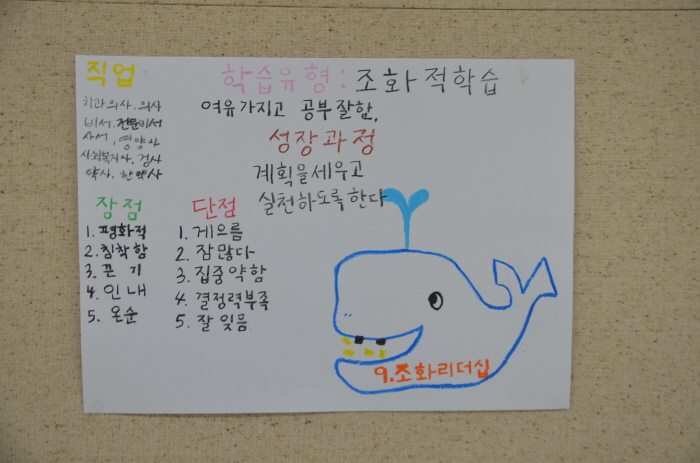 직업
치과의사, 의사
비서, 전문비서
사서, 영양사
사회복지사, 검사
약사, 한약사
학습유형: 조화적학습
여유가지고 공부잘함,
성장과정
계획을세우고
실천하도록한다
장점
1. 평화적
2. 침착함
3. 끈기
4. 인내
5. 온순
단점
1. 게으름
2. 잠많다
3. 집중약함
4. 결정력부족
5. 잘잊음
9. 조화리더십